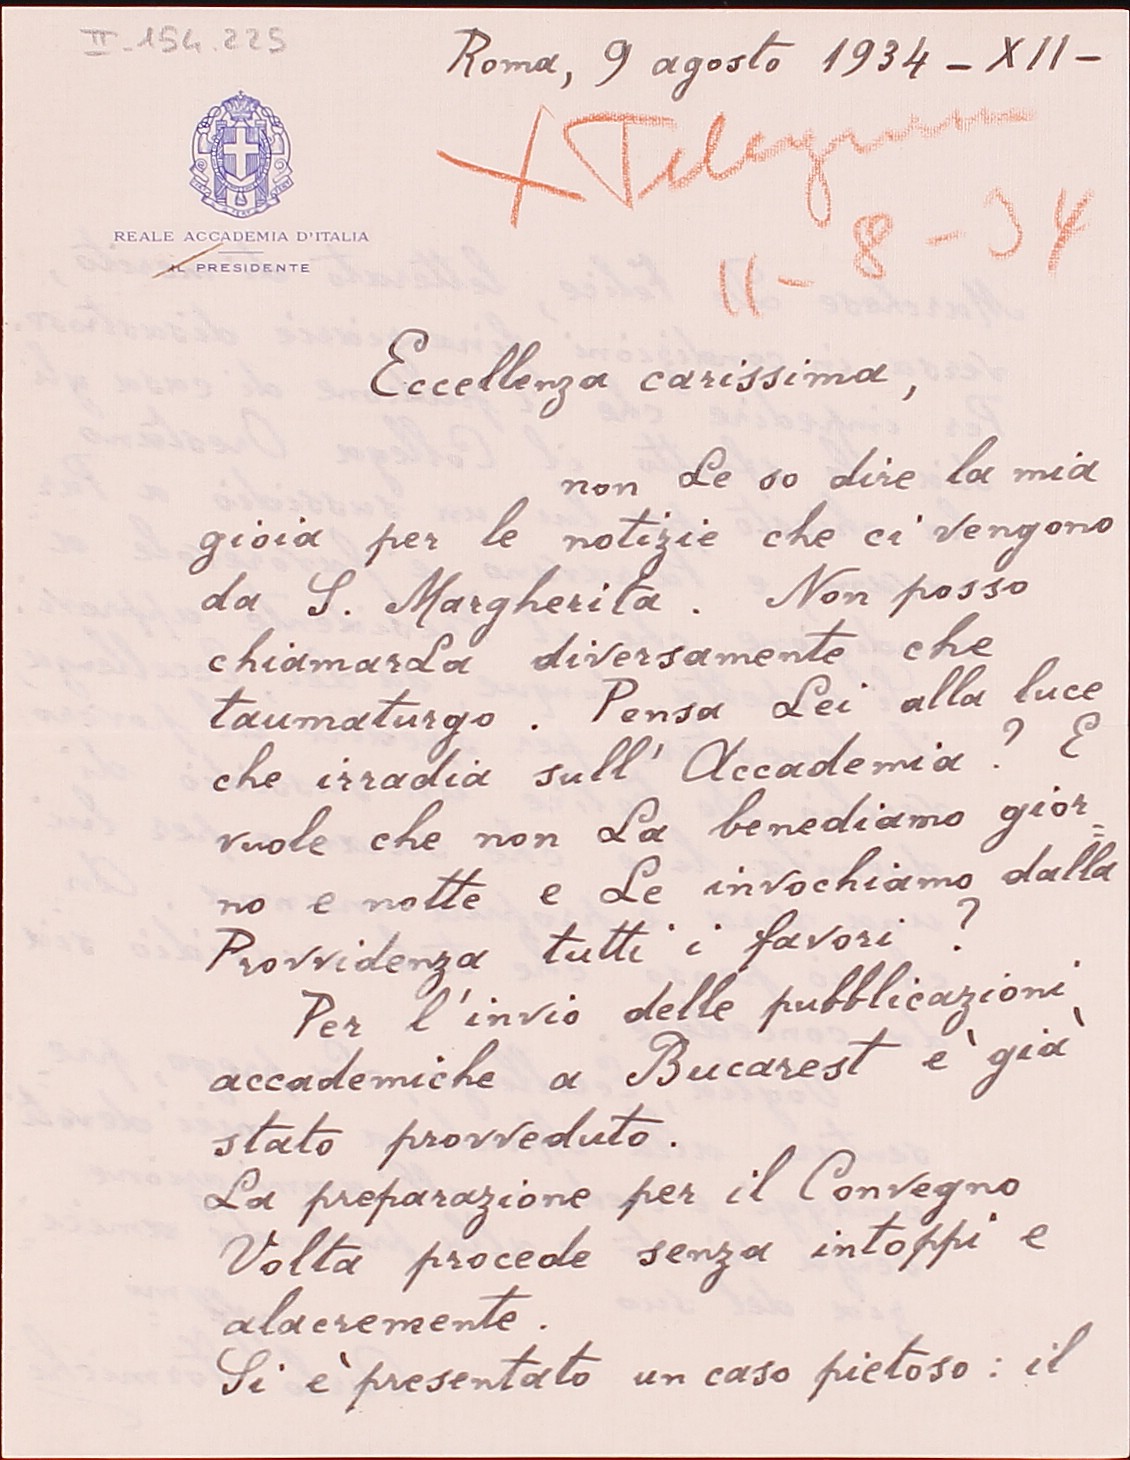 II.154.225
Roma, 9 agosto 1934 - XII -
X Telegramma
11-8-34
REALE ACCADEMIA D'ITALIA
IL PRESIDENTE
Eccellenza carissima,
non Le so dire la mia
gioia per le notizie che ci vengono
da S. Margherita. Non posso
chiamarLa diversamente che
taumaturgo. Pensa Lei alla luce
che irradia sull'Accademia? E
vuole che non La benediamo gior=
no e notte e Le invochiamo dalla
Provvidenza tutti i favori?
Per l'invio delle pubblicazioni
accademiche a Bucarest è già
stato provveduto.
La preparazione per il Convegno
Volta procede senza intoppi e
alacremente.
Si è presentato un caso pietoso: il